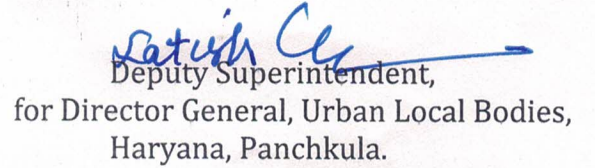 Satish
Deputy Superintendent,
for Director General, Urban Local Bodies,
Haryana, Panchkula.